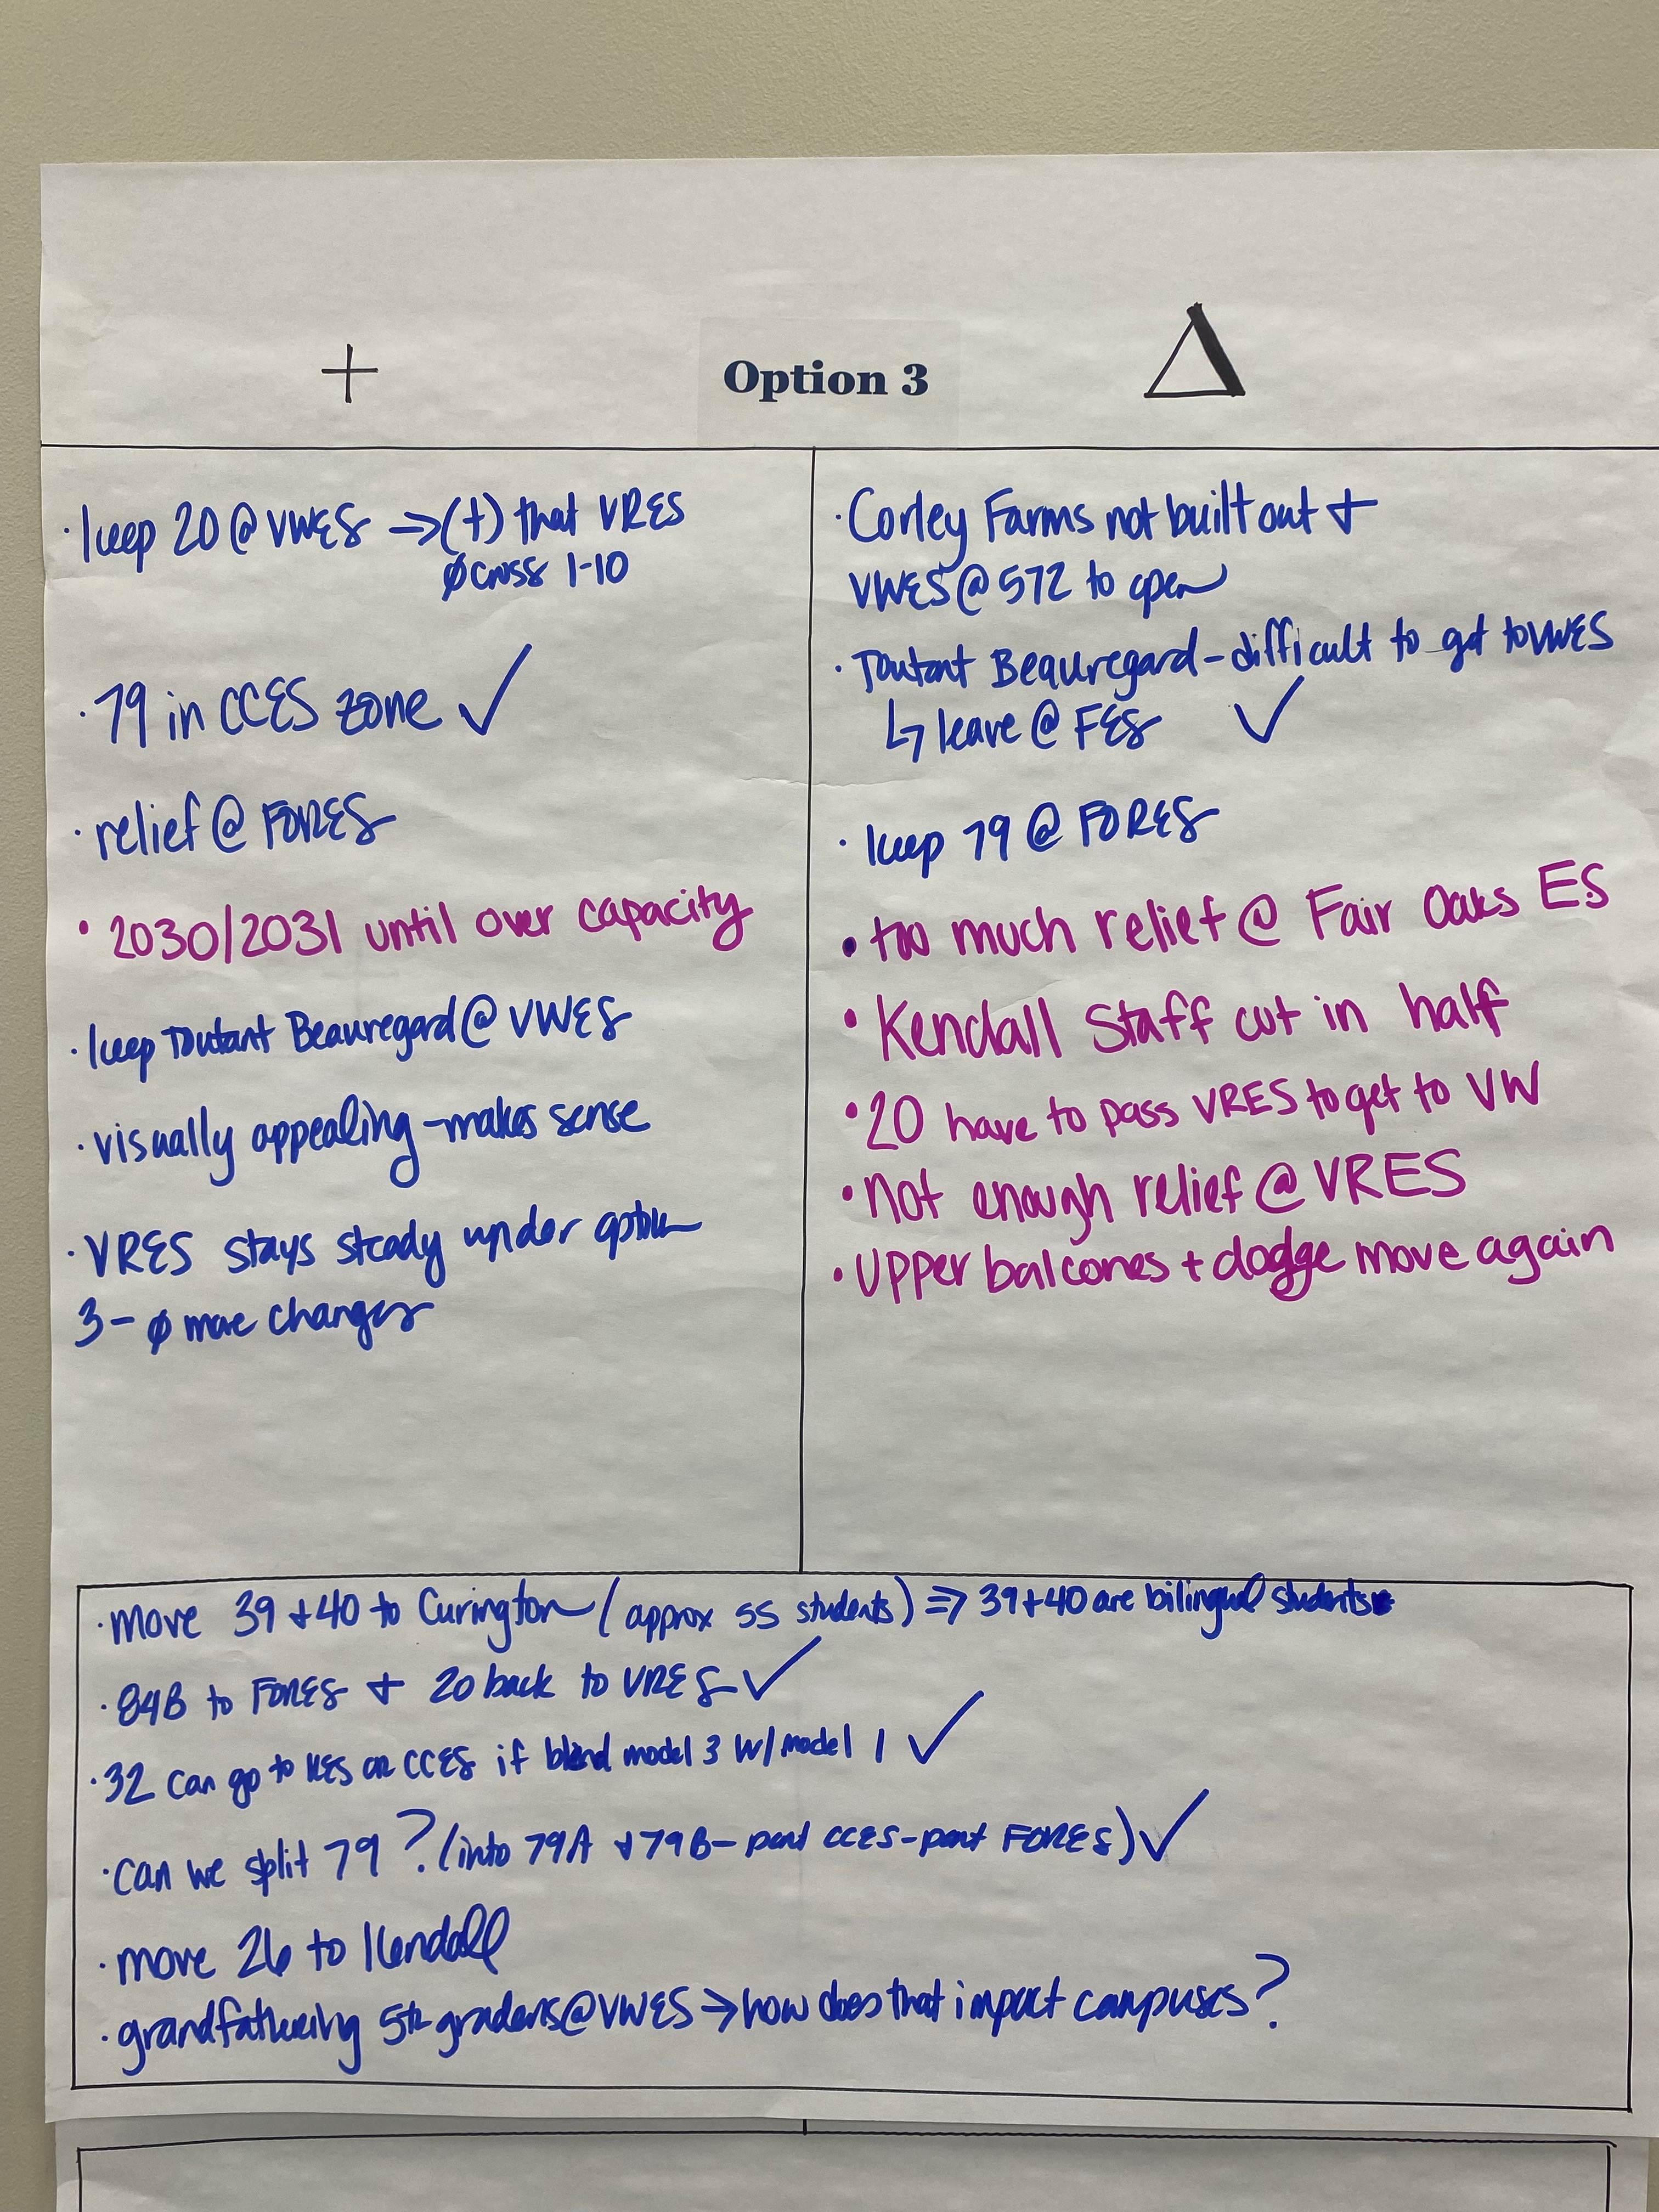 +
Option 3
Δ
· keep 20 @ VWES ⇒ (+) that VRES
Ø cross 1-10
· 79 in CCES zone ✓
· relief @ FORES
· 2030/2031 until over capacity
· keep Toutant Beauregard @ VWES
· visually appealing - makes sense
· VRES stays steady under option
3 - Ø more changes
· Corley Farms not built out +
VWES @ 572 to open
· Toutant Beauregard - difficult to get to VWES
↳ leave @ FES ✓
· keep 79 @ FORES
• too much relief @ Fair Oaks ES
• Kendall Staff cut in half
• 20 have to pass VRES to get to VW
• Not enough relief @ VRES
• Upper balcones + dodge move again
· move 39 + 40 to Curington (approx 55 students) ⇒ 39 + 40 are bilingual students
· 84B to FORES + 20 back to VRES ✓
· 32 can go to KES or CCES if blend model 3 w/ model 1 ✓
· can we split 79? (into 79A + 79B - part CCES - part FORES) ✓
· move 26 to Kendall
· grandfathering 5th graders @ VWES → how does that impact campuses?